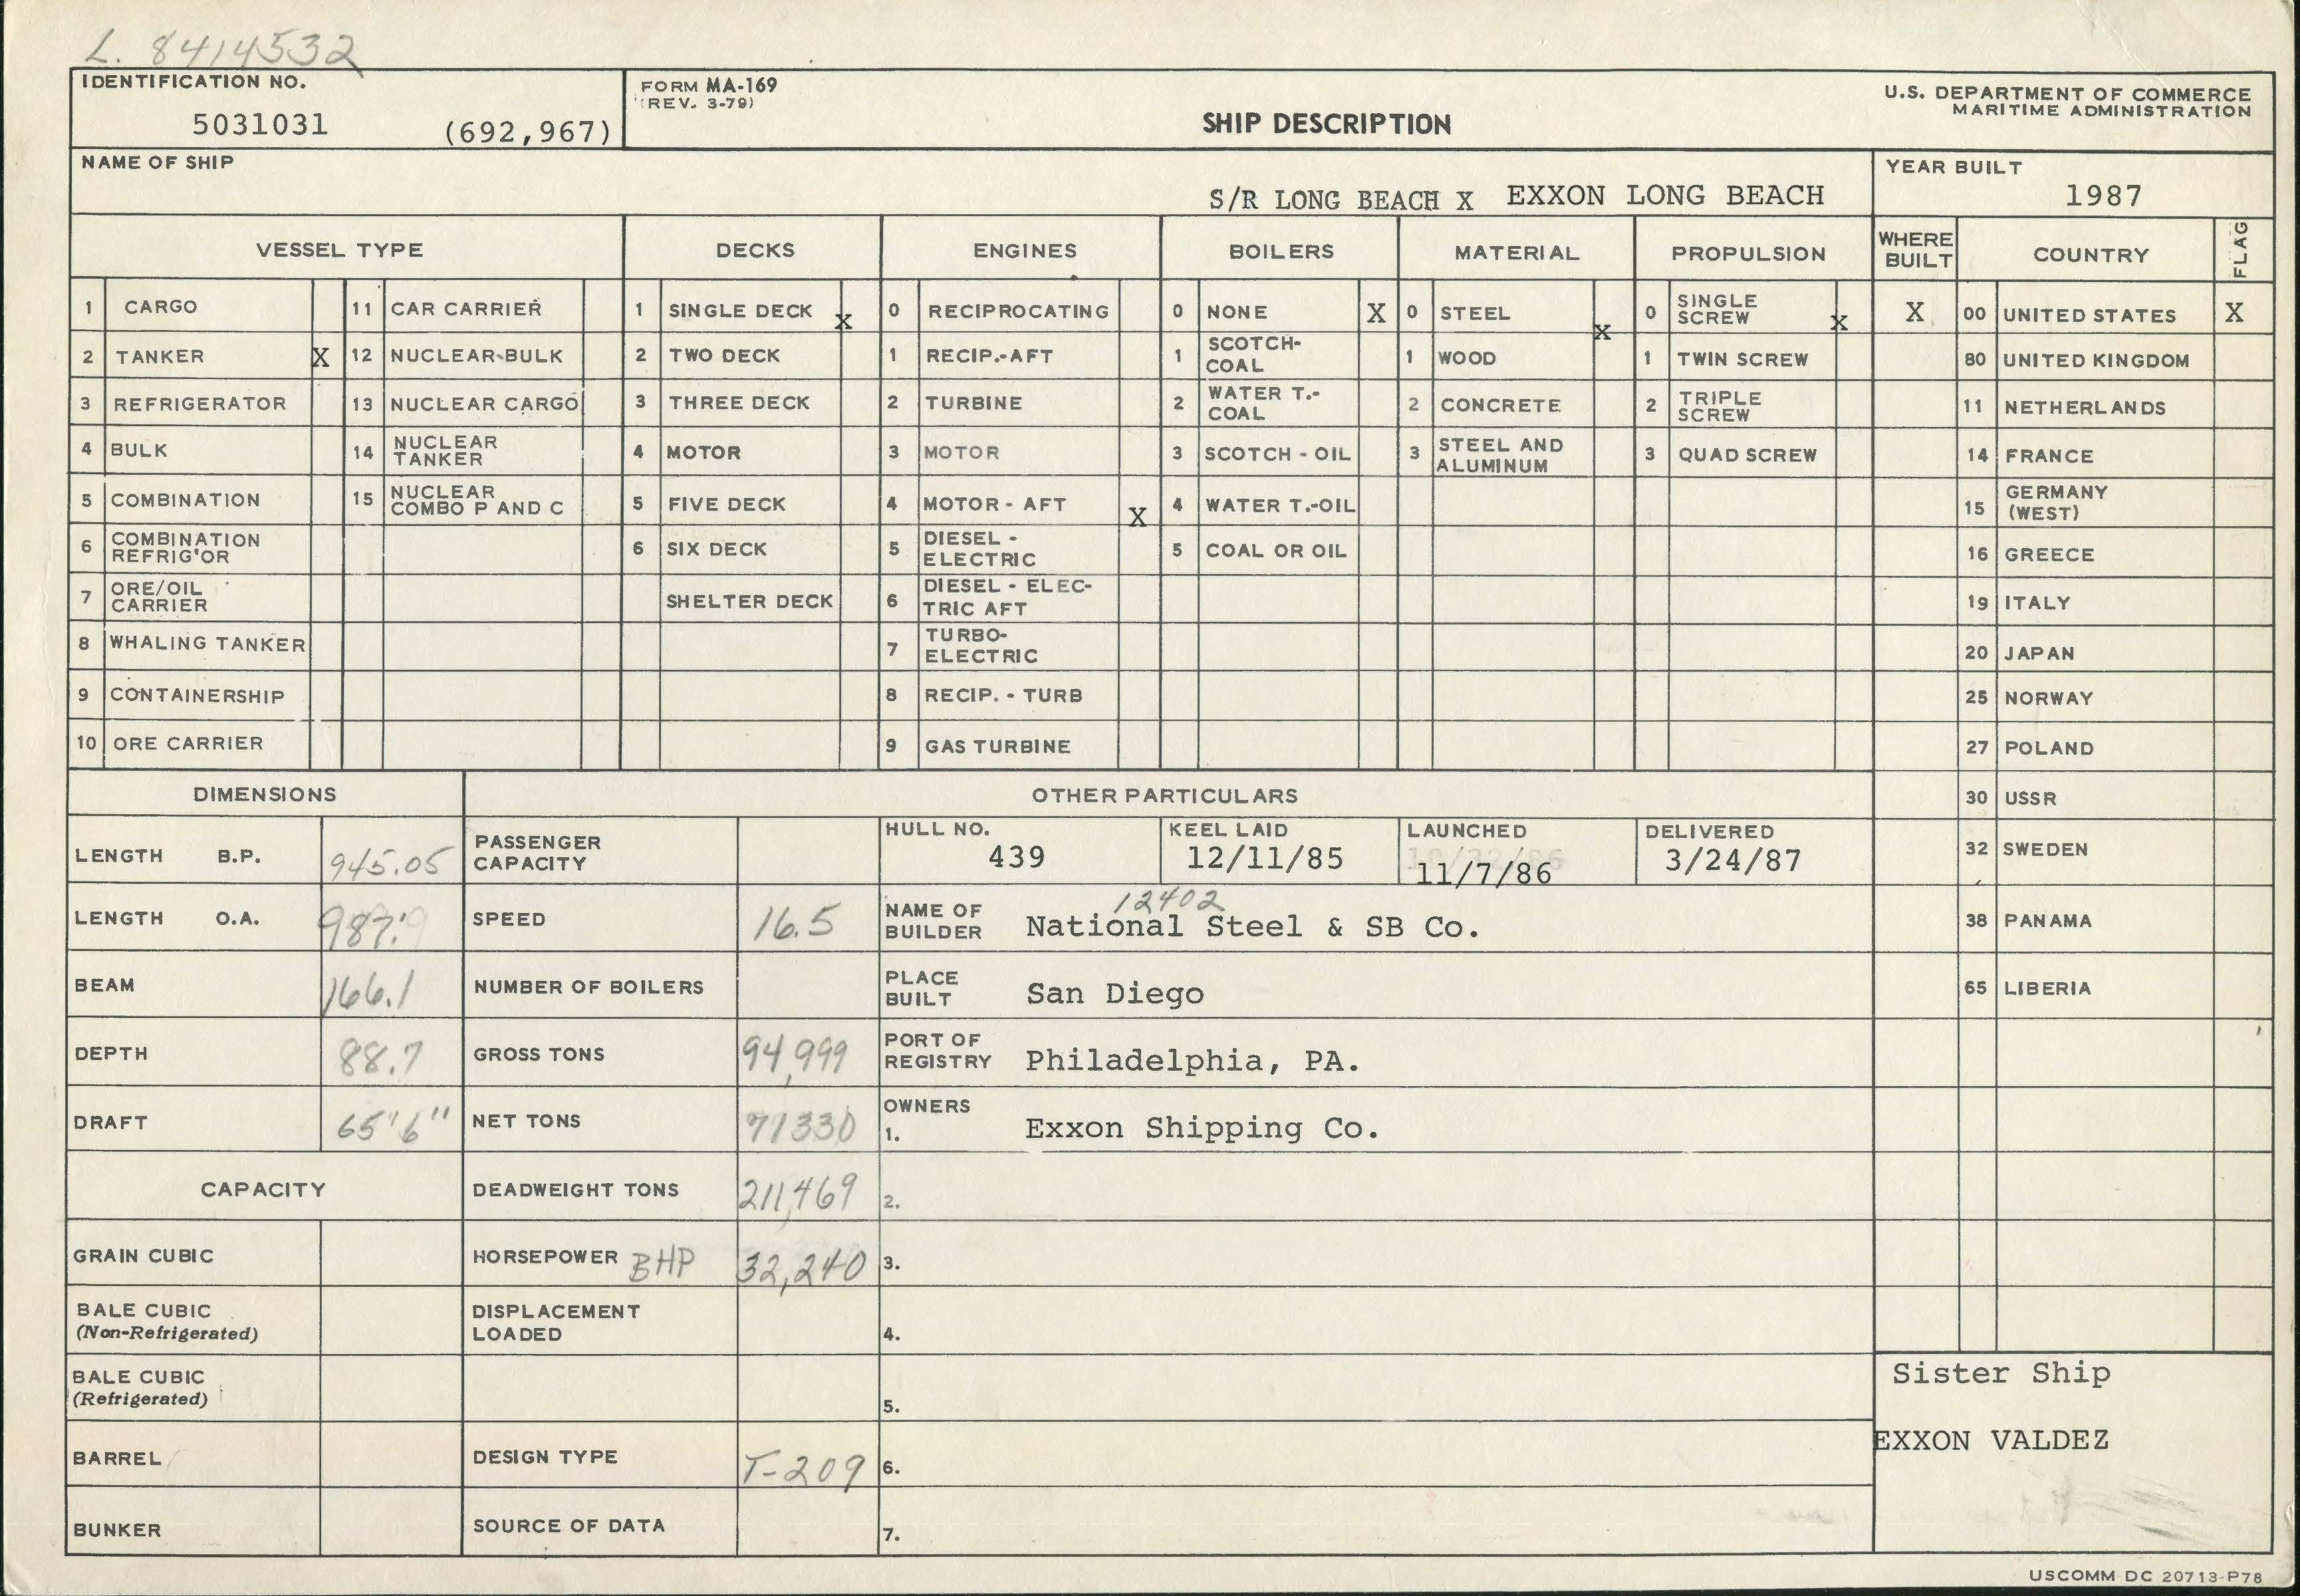 L. 8414532
IDENTIFICATION NO.
5031031 (692,967)
FORM MA-169
(REV. 3-79)
SHIP DESCRIPTION
U.S. DEPARTMENT OF COMMERCE
MARITIME ADMINISTRATION
NAME OF SHIP
S/R LONG BEACH X EXXON LONG BEACH
YEAR BUILT
1987
VESSEL TYPE DECKS ENGINES BOILERS MATERIAL PROPULSION WHERE BUILT COUNTRY FLAG
1 CARGO 11 CAR CARRIER 1 SINGLE DECK X 0 RECIPROCATING 0 NONE X 0 STEEL X 0 SINGLE SCREW X X 00 UNITED STATES X
2 TANKER X 12 NUCLEAR-BULK 2 TWO DECK 1 RECIP.-AFT 1 SCOTCH-COAL 1 WOOD 1 TWIN SCREW 80 UNITED KINGDOM
3 REFRIGERATOR 13 NUCLEAR CARGO 3 THREE DECK 2 TURBINE 2 WATER T.-COAL 2 CONCRETE 2 TRIPLE SCREW 11 NETHERLANDS
4 BULK 14 NUCLEAR TANKER 4 MOTOR 3 MOTOR 3 SCOTCH - OIL 3 STEEL AND ALUMINUM 3 QUAD SCREW 14 FRANCE
5 COMBINATION 15 NUCLEAR COMBO P AND C 5 FIVE DECK 4 MOTOR - AFT X 4 WATER T.-OIL 15 GERMANY (WEST)
6 COMBINATION REFRIG'OR 6 SIX DECK 5 DIESEL - ELECTRIC 5 COAL OR OIL 16 GREECE
7 ORE/OIL CARRIER SHELTER DECK 6 DIESEL - ELECTRIC AFT 19 ITALY
8 WHALING TANKER 7 TURBO-ELECTRIC 20 JAPAN
9 CONTAINERSHIP 8 RECIP. - TURB 25 NORWAY
10 ORE CARRIER 9 GAS TURBINE 27 POLAND
DIMENSIONS OTHER PARTICULARS 30 USSR
LENGTH B.P. 945.05 PASSENGER CAPACITY HULL NO. 439 KEEL LAID 12/11/85 LAUNCHED 11/7/86 DELIVERED 3/24/87 32 SWEDEN
12402
LENGTH O.A. 987.9 SPEED 16.5 NAME OF BUILDER National Steel & SB Co. 38 PANAMA
BEAM 166.1 NUMBER OF BOILERS PLACE BUILT San Diego 65 LIBERIA
DEPTH 88.7 GROSS TONS 94,999 PORT OF REGISTRY Philadelphia, PA.
DRAFT 65'6" NET TONS 71330 OWNERS 1. Exxon Shipping Co.
CAPACITY DEADWEIGHT TONS 211,469 2.
GRAIN CUBIC HORSEPOWER BHP 32,240 3.
BALE CUBIC (Non-Refrigerated) DISPLACEMENT LOADED 4.
BALE CUBIC (Refrigerated) 5.
Sister Ship
EXXON VALDEZ
BARREL DESIGN TYPE T-209 6.
BUNKER SOURCE OF DATA 7.
USCOMM DC 20713-P78